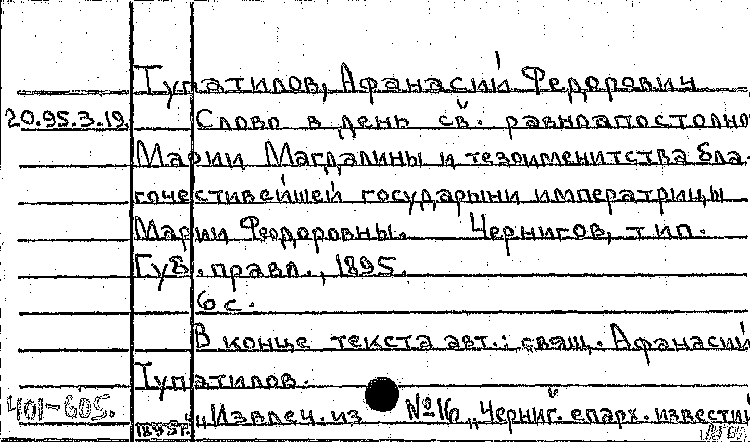 Тупатилов, Афанасий Федорович
20.95.3.19. Слово в день св. равноапостольно
Марии Магдалины и тезоименитства бла-
гочестивейшей государыни императрицы
Марии Феодоровны. Чернигов, тип.
Губ. правл., 1895.
6 с.
В конце текста авт.: свящ. Афанасий
Тупатилов.
401-605. 1895г. „Извлеч. из №16 „Черниг. епарх. известий